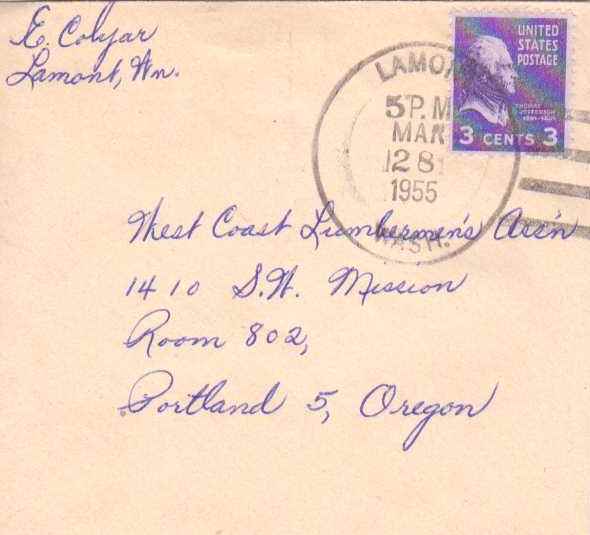 E. Colyar
Lamont, Wn.
UNITED
STATES
POSTAGE
THOMAS
JEFFERSON
3 CENTS 3
LAMONT
5 P.M
MAR
28
1955
WASH.
West Coast Lumbermen's Ass'n
1410 S.W. Mission
Room 802,
Portland 5, Oregon